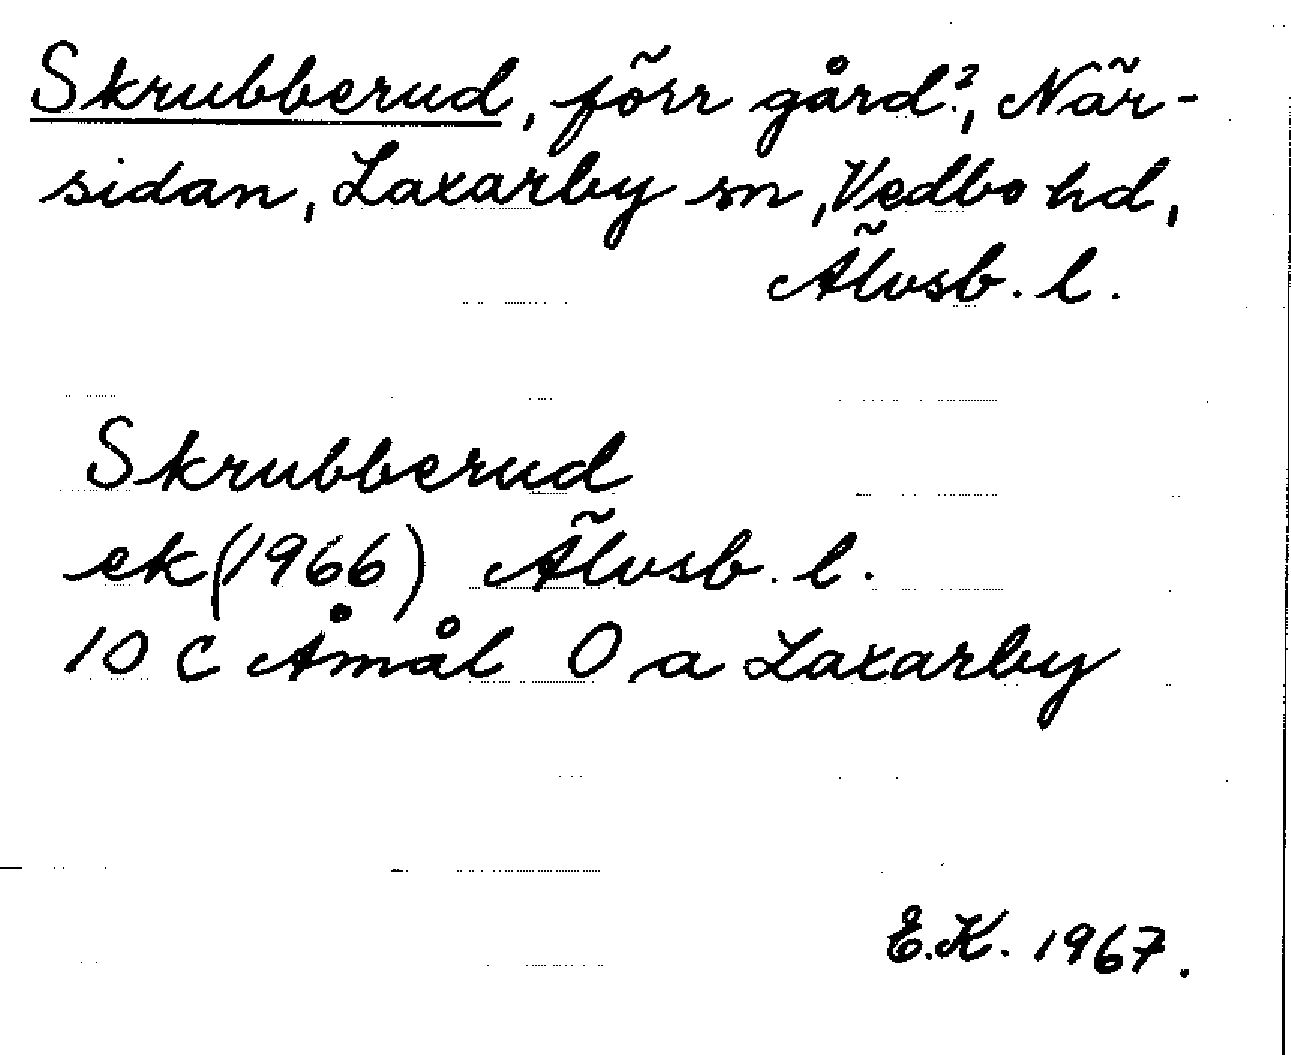 Skrubberud, förr gård?, När-
sidan, Laxarby sn, Vedbo hd,
Älvsb. l.
Skrubberud
ek (1966) Älvsb. l.
10 C Åmål 0 a Laxarby
E.K. 1967.